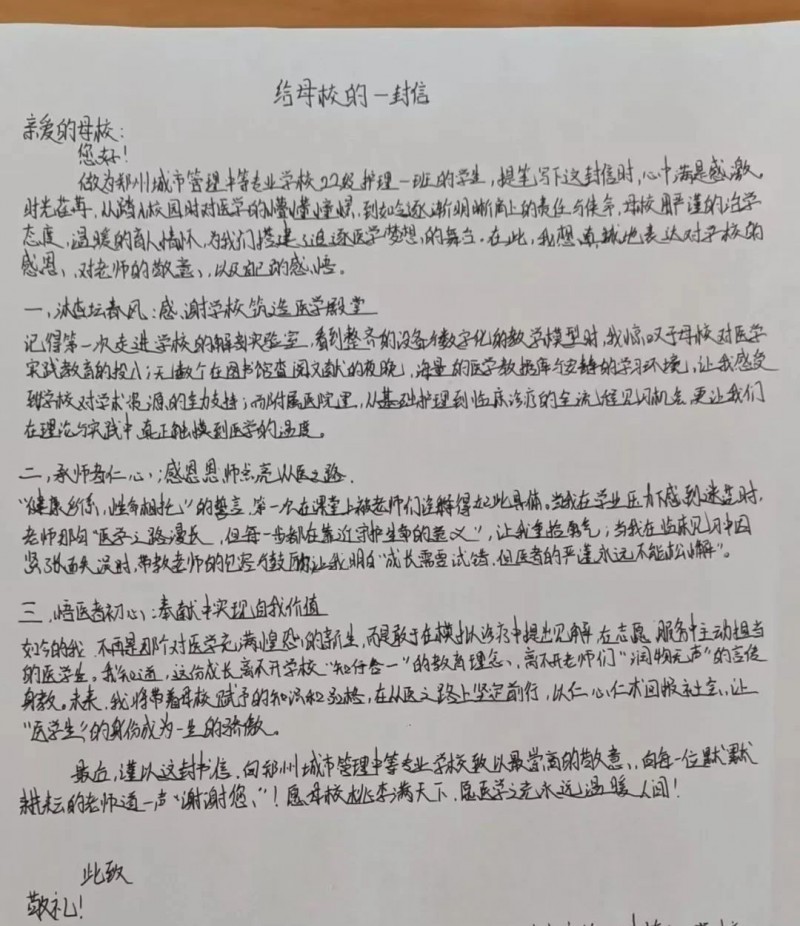 给母校的一封信
亲爱的母校：
您好！
做为郑州城市管理中等专业学校22级护理一班的学生，提笔写下这封信时，心中满是感激。
时光荏苒，从踏入校园时对医学的懵懂憧憬，到如今逐渐明晰肩上的责任与使命，母校用严谨的治学
态度，温暖的育人情怀，为我们搭建了追逐医学梦想的舞台。在此，我想真诚地表达对学校的
感恩、对老师的敬意、以及自己的感悟。
一、沐杏坛春风：感谢学校筑造医学殿堂
记得第一次走进学校的解剖实验室，看到整齐的设备与数字化的教学模型时，我惊叹于母校对医学
实践教育的投入；无数个在图书馆查阅文献的夜晚，海量的医学数据库与安静的学习环境，让我感受
到学校对学术资源的全力支持；而附属医院里，从基础护理到临床诊疗的全流程见习机会，更让我们
在理论与实践中真正触摸到医学的温度。
二、承师者仁心：感恩恩师点亮从医之路
“健康所系，性命相托”的誓言，第一次在课堂上被老师们诠释得如此具体。当我在学业压力下感到迷茫时，
老师那句“医学之路漫长，但每一步都在靠近守护生命的意义”，让我重拾勇气；当我在临床见习中因
紧张而失误时，带教老师的包容与鼓励让我明白“成长需要试错，但医者的严谨永远不能松懈”。
三、悟医者初心：奉献中实现自我价值
如今的我，不再是那个对医学充满惶恐的新生，而是敢于在模拟诊疗中提出见解，在志愿服务中主动担当
的医学生。我知道，这份成长离不开学校“知行合一”的教育理念、离不开老师们“润物无声”的言传
身教。未来，我将带着母校赋予的知识和品格，在从医之路上坚定前行，以仁心仁术回报社会，让
“医学生”的身份成为一生的骄傲。
最后，谨以这封书信，向郑州城市管理中等专业学校致以最崇高的敬意、向每一位默默
耕耘的老师道一声“谢谢您、”！愿母校桃李满天下，愿医学之光永远温暖人间！
此致
敬礼！